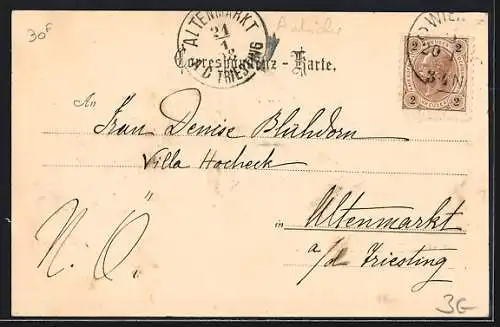 30F
ALTENMARKT
21
1
A/D TRIESTING
WIEN
3-4 N
2 2
2 2
Correspondenz - Karte.
An
Frau Denise Blühdorn
Villa Hocheck
in Altenmarkt
a/d Triesting
N. Ö.
3G